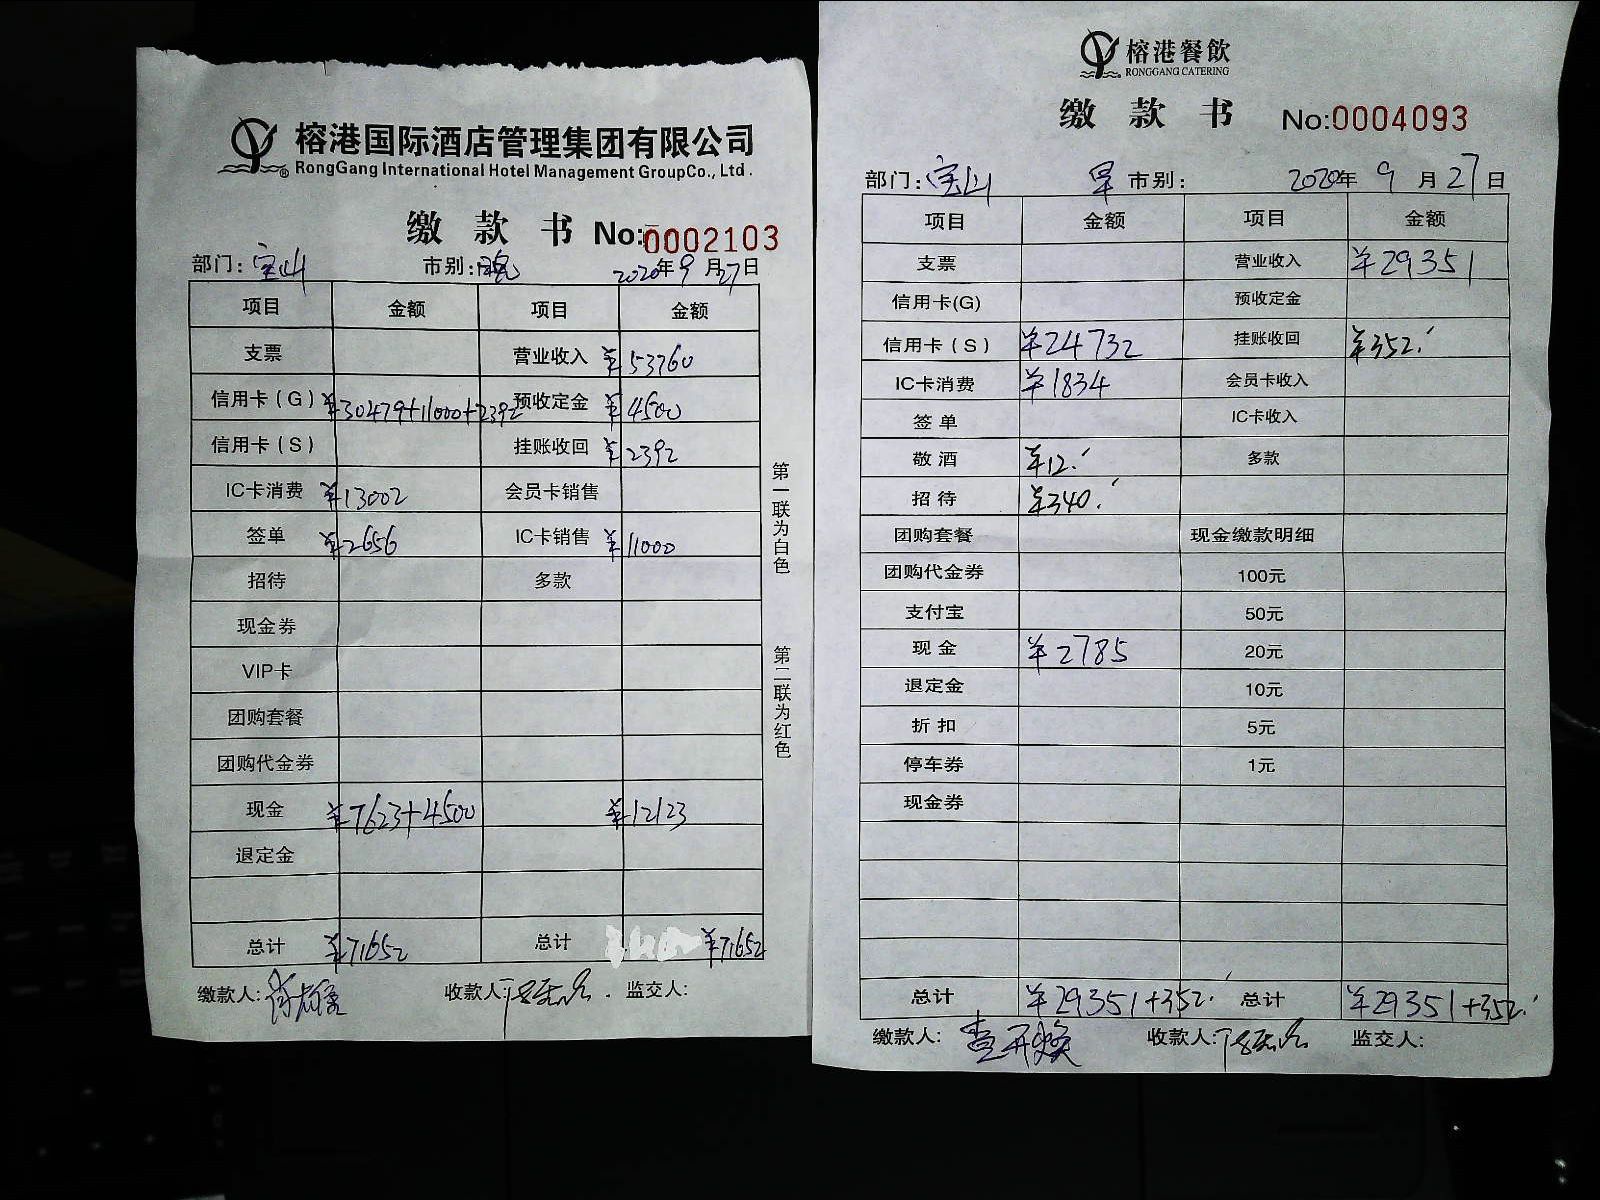 榕港国际酒店管理集团有限公司
RongGang International Hotel Management GroupCo., Ltd.
缴款书 No:0002103
部门:宝山 市别:晚 2020年9月27日
项目 金额 项目 金额
支票 营业收入 ¥53760
信用卡(G) ¥30479+11000+2392 预收定金 ¥4500
信用卡(S) 挂账收回 ¥2392
IC卡消费 ¥13002 会员卡销售
签单 ¥2656 IC卡销售 ¥11000
招待 多款
现金券
VIP卡
团购套餐
团购代金券
现金 ¥7623+4500 ¥12123
退定金
总计 ¥71652 总计 ¥71652
缴款人: 收款人: 监交人:
第一联为白色
第二联为红色
榕港餐飲
RONGGANG CATERING
缴款书 No:0004093
部门:宝山 早 市别: 2020年9月27日
项目 金额 项目 金额
支票 营业收入 ¥29351
信用卡(G) 预收定金
信用卡(S) ¥24732 挂账收回 ¥352.
IC卡消费 ¥1834 会员卡收入
签单 IC卡收入
敬酒 ¥12. 多款
招待 ¥340.
团购套餐 现金缴款明细
团购代金券 100元
支付宝 50元
现金 ¥2785 20元
退定金 10元
折扣 5元
停车券 1元
现金券
总计 ¥29351+352. 总计 ¥29351+352.
缴款人: 收款人: 监交人: